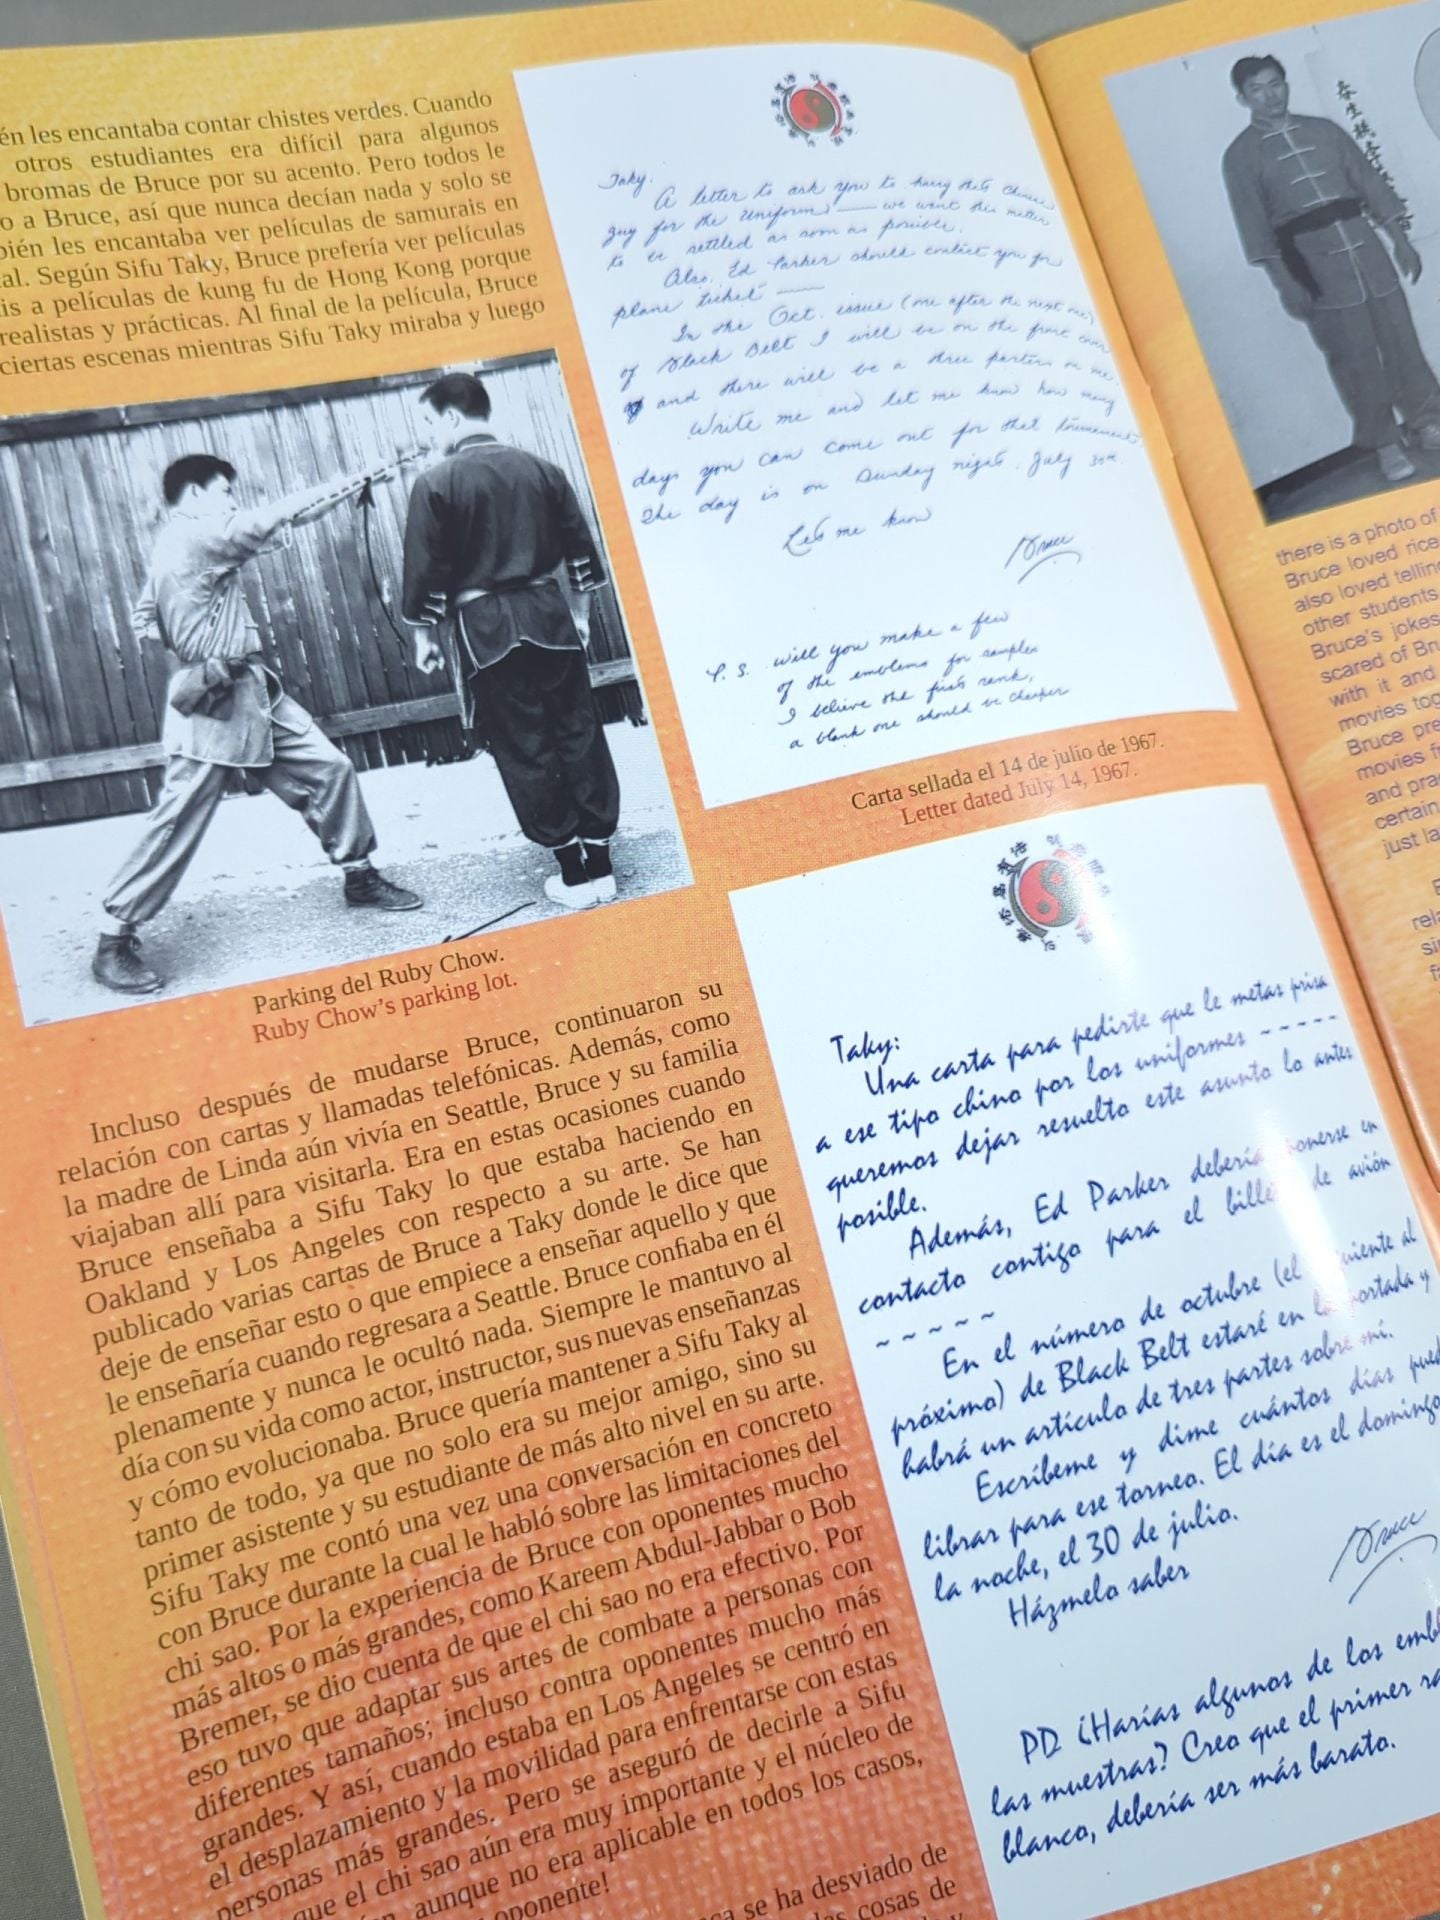 én les encantaba contar chistes verdes. Cuando
otros estudiantes era difícil para algunos
bromas de Bruce por su acento. Pero todos le
o a Bruce, así que nunca decían nada y solo se
bién les encantaba ver películas de samurais en
tal. Según Sifu Taky, Bruce prefería ver películas
is a películas de kung fu de Hong Kong porque
realistas y prácticas. Al final de la película, Bruce
ciertas escenas mientras Sifu Taky miraba y luego
Parking del Ruby Chow.
Ruby Chow's parking lot.
Incluso después de mudarse Bruce, continuaron su
relación con cartas y llamadas telefónicas. Además, como
la madre de Linda aún vivía en Seattle, Bruce y su familia
viajaban allí para visitarla. Era en estas ocasiones cuando
Bruce enseñaba a Sifu Taky lo que estaba haciendo en
Oakland y Los Angeles con respecto a su arte. Se han
publicado varias cartas de Bruce a Taky donde le dice que
deje de enseñar esto o que empiece a enseñar aquello y que
le enseñaría cuando regresara a Seattle. Bruce confiaba en él
plenamente y nunca le ocultó nada. Siempre le mantuvo al
día con su vida como actor, instructor, sus nuevas enseñanzas
y cómo evolucionaba. Bruce quería mantener a Sifu Taky al
tanto de todo, ya que no solo era su mejor amigo, sino su
primer asistente y su estudiante de más alto nivel en su arte.
Sifu Taky me contó una vez una conversación en concreto
con Bruce durante la cual le habló sobre las limitaciones del
chi sao. Por la experiencia de Bruce con oponentes mucho
más altos o más grandes, como Kareem Abdul-Jabbar o Bob
Bremer, se dio cuenta de que el chi sao no era efectivo. Por
eso tuvo que adaptar sus artes de combate a personas con
diferentes tamaños; incluso contra oponentes mucho más
grandes. Y así, cuando estaba en Los Angeles se centró en
el desplazamiento y la movilidad para enfrentarse con estas
personas más grandes. Pero se aseguró de decirle a Sifu
que el chi sao aún era muy importante y el núcleo de
aunque no era aplicable en todos los casos,
oponente!
se ha desviado de
cosas de
Taky,
A letter to ask you to hurry that Chinese
guy for the uniform — we want this matter
to be settled as soon as possible.
Also, Ed Parker should contact you for
plane ticket —
In the Oct. issue (one after the next one)
of Black Belt I will be on the front cover
and there will be a three parters on me.
Write me and let me know how many
days you can come out for that tournament
The day is on Sunday night, July 30th.
Let me know
Bruce
P.S. Will you make a few
of the emblems for samples
I believe the first rank,
a blank one should be cheaper
Carta sellada el 14 de julio de 1967.
Letter dated July 14, 1967.
Taky:
Una carta para pedirte que le metas prisa
a ese tipo chino por los uniformes ~ ~ ~ ~ ~
queremos dejar resuelto este asunto lo antes
posible.
Además, Ed Parker debería ponerse en
contacto contigo para el billete de avión
~ ~ ~ ~ ~
En el número de octubre (el siguiente al
próximo) de Black Belt estaré en la portada y
habrá un artículo de tres partes sobre mí.
Escríbeme y dime cuántos días
librar para ese torneo. El día es el domingo
la noche, el 30 de julio.
Házmelo saber
Bruce
PD ¿Harías algunos de los
las muestras? Creo que el primer
blanco, debería ser más barato.
there is a photo of
Bruce loved rice
also loved telling
other students
Bruce's jokes
scared of
with it and
movies
Bruce
movies
and
certain
just